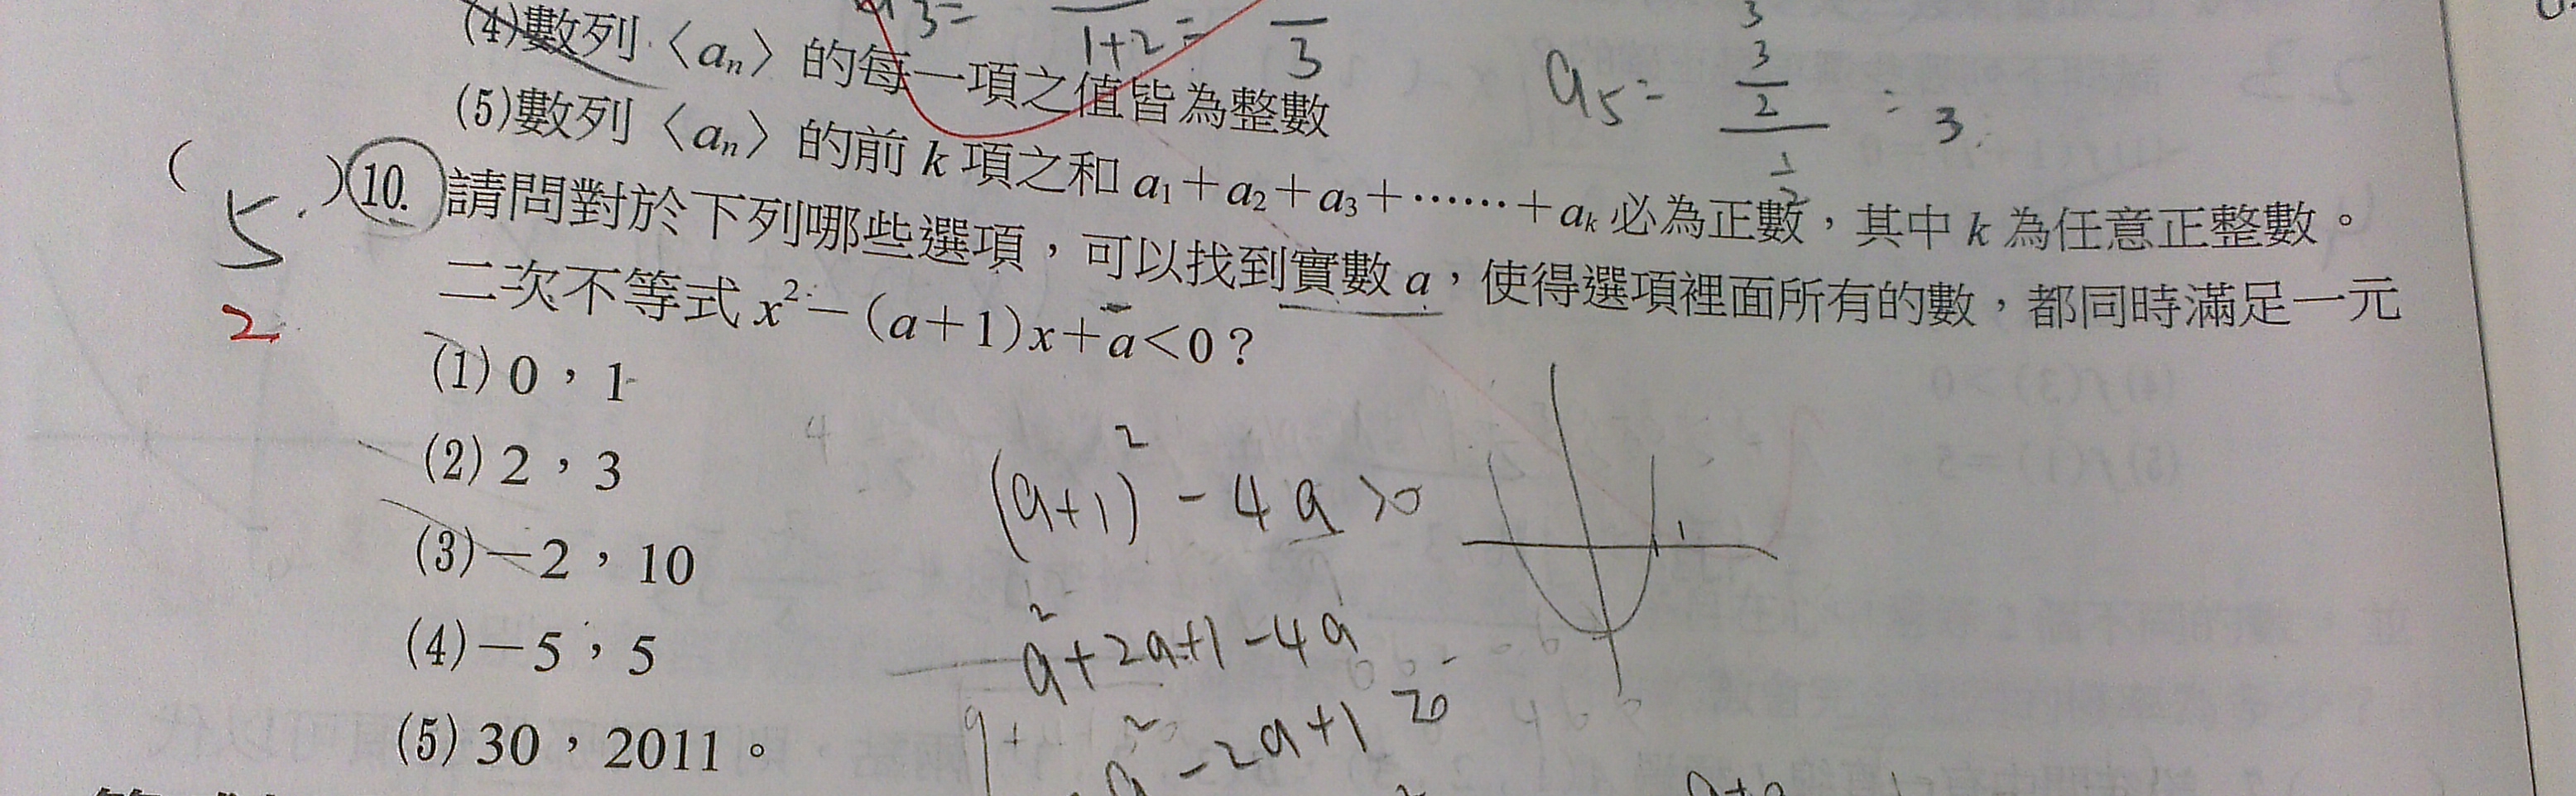 a3= 1+2 = 3
(4)數列〈an〉的每一項之值皆為整數
a5= 3/2 = 3
(5)數列〈an〉的前 k 項之和 a1+a2+a3+……+ak 必為正數，其中 k 為任意正整數。
( 5. )10. 請問對於下列哪些選項，可以找到實數 a，使得選項裡面所有的數，都同時滿足一元
2
二次不等式 x²−(a+1)x+a<0？
(1) 0，1
(2) 2，3
(a+1)²-4a>0
1
(3)−2，10
(4)−5，5
a²+2a+1-4a
(5) 30，2011。
a²-2a+1 >0